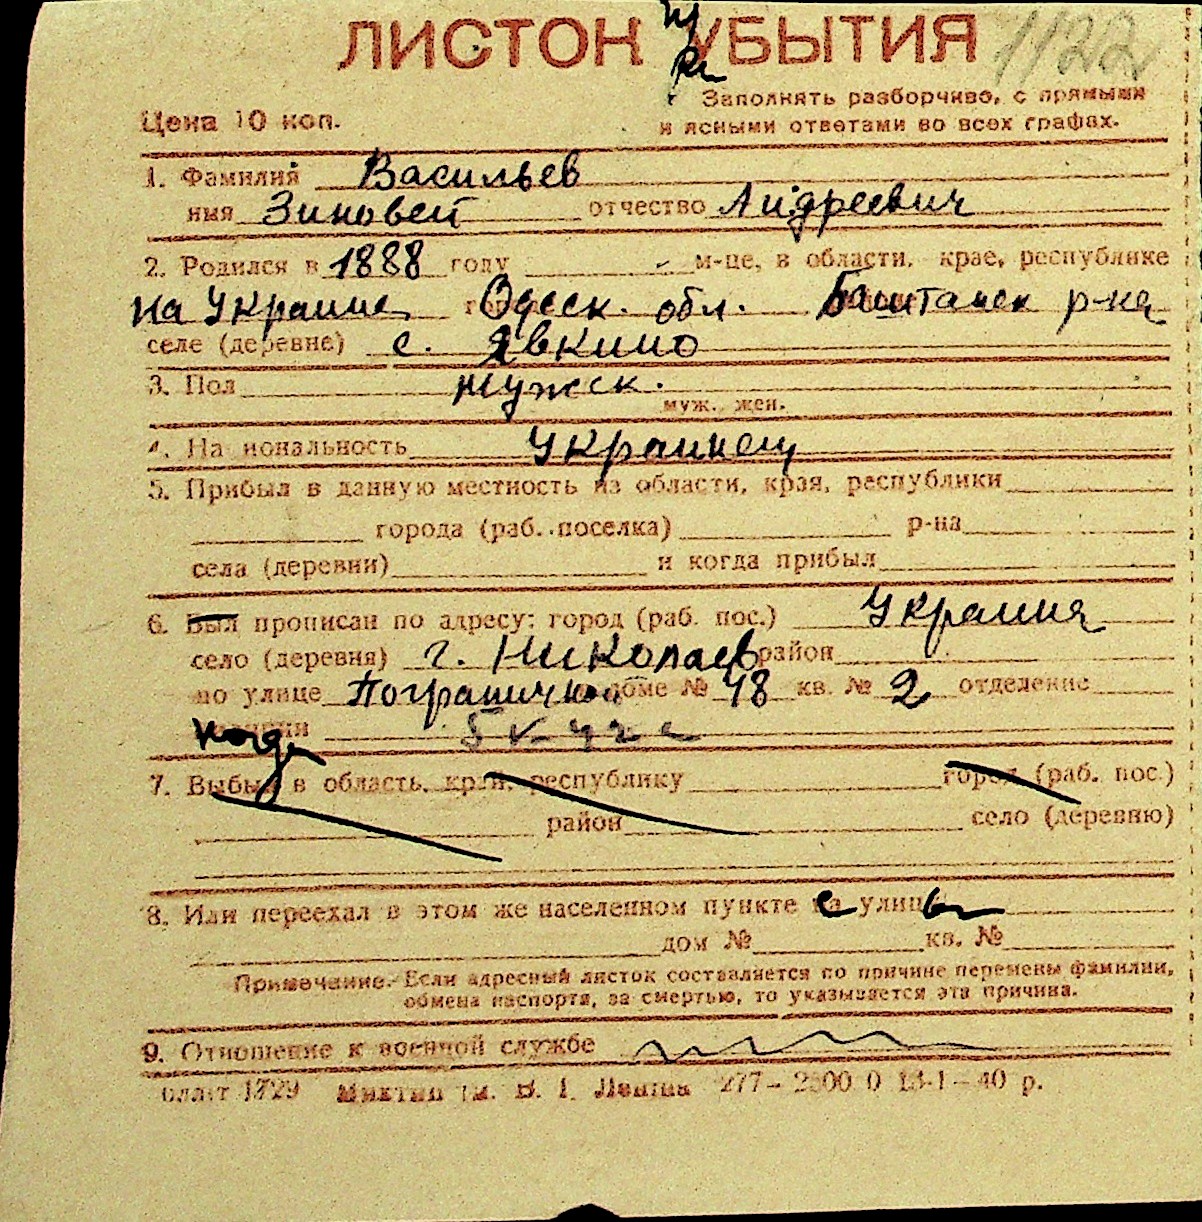 ЛИСТОК УБЫТИЯ 1122
Заполнять разборчиво, с прямыми
Цена 10 коп. и ясными ответами во всех графах.
1. Фамилия Васильев
имя Зиновей отчество Андреевич
2. Родился в 1888 году м-це, в области, крае, республике
на Украине Одесск. обл. Баштанск р-на
селе (деревне) с. Явкино
3. Пол мужск.
муж. жен.
4. Национальность Украинец
5. Прибыл в данную местность из области, края, республики
города (раб. поселка) р-на
села (деревни) и когда прибыл
6. Был прописан по адресу: город (раб. пос.) Украина
село (деревня) г. Николаев район
по улице Погранична доме № 48 кв. № 2 отделение
7. Выбыл в область, край, республику город (раб. пос.)
район село (деревню)
8. Или переехал в этом же населенном пункте с улицы
дом № кв. №
Примечание. Если адресный листок составляется по причине перемены фамилии,
обмена паспорта, за смертью, то указывается эта причина.
9. Отношение к военной службе
1729 им. В. І. Леніна 277— 40 р.